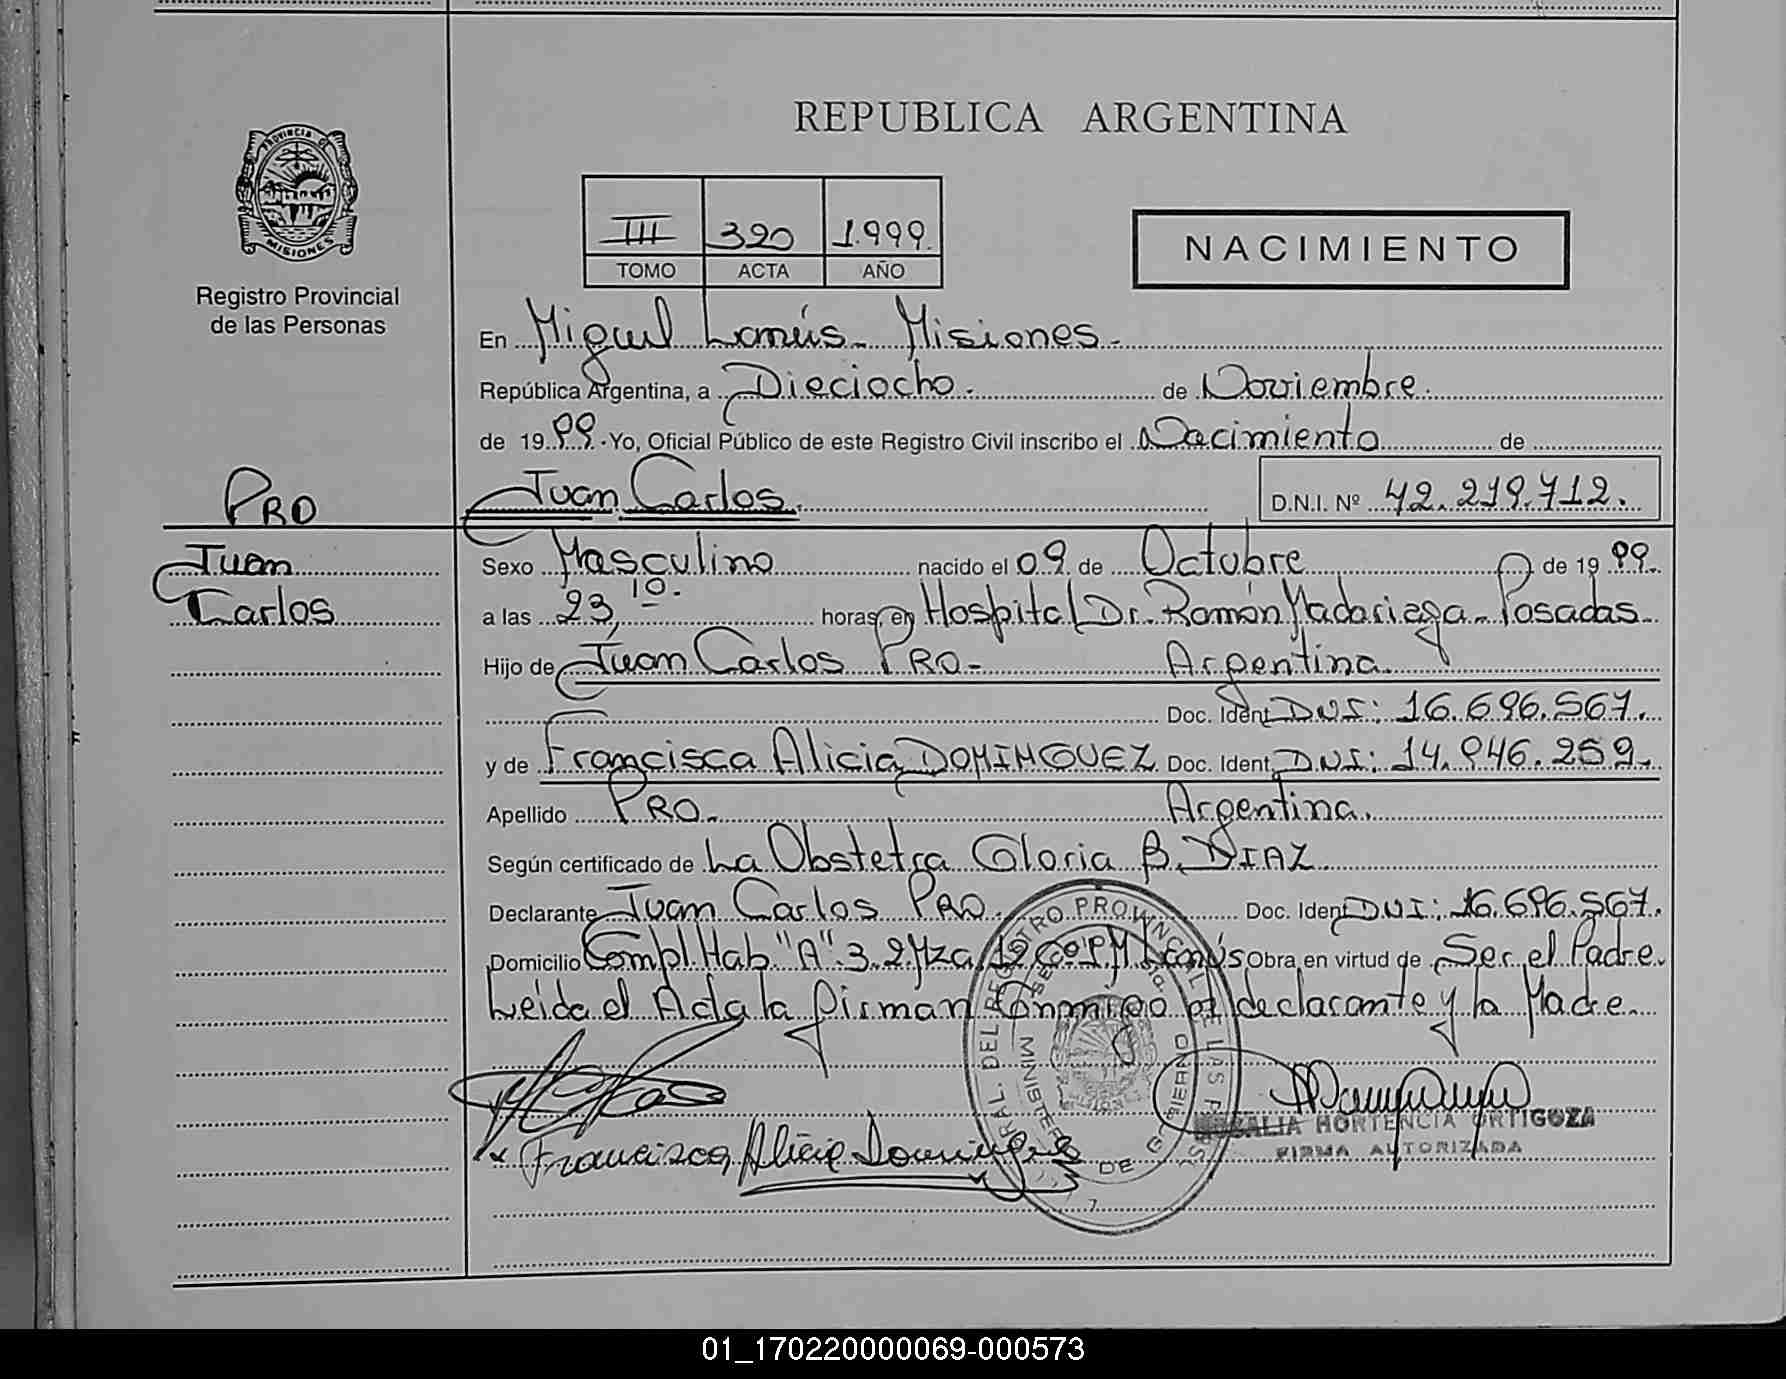 REPUBLICA ARGENTINA
PROVINCIA DE
MISIONES
Registro Provincial
de las Personas
III 320 1.999.
TOMO ACTA AÑO
NACIMIENTO
En Miguel Lanús - Misiones.-
República Argentina, a Dieciocho. de Noviembre.
de 19 99. Yo, Oficial Público de este Registro Civil inscribo el Nacimiento de
Juan Carlos. D.N.I. Nº 42.219.712.
PRO
Juan
Carlos
Sexo Masculino nacido el 09 de Octubre de 19 99.
a las 23,10. horas, en Hospital Dr. Ramón Madariaga - Posadas.
Hijo de Juan Carlos PRO - Argentina.
Doc. Ident. DNI: 16.696.567.
y de Francisca Alicia DOMINGUEZ Doc. Ident. DNI: 14.946.259.
Apellido PRO. Argentina.
Según certificado de La Obstetra Gloria B. DIAZ
Declarante Juan Carlos PRO. Doc. Ident DNI: 16.696.567.
Domicilio Compl. Hab "A" 3.2 Mza. 12 Lanús Obra en virtud de Ser el Padre.
Leida el Acta la firman Conmigo el declarante y la Madre.
Francisca Alicia Dominguez
HORTENCIA ORTIGOZA
FIRMA AUTORIZADA
01_170220000069-000573